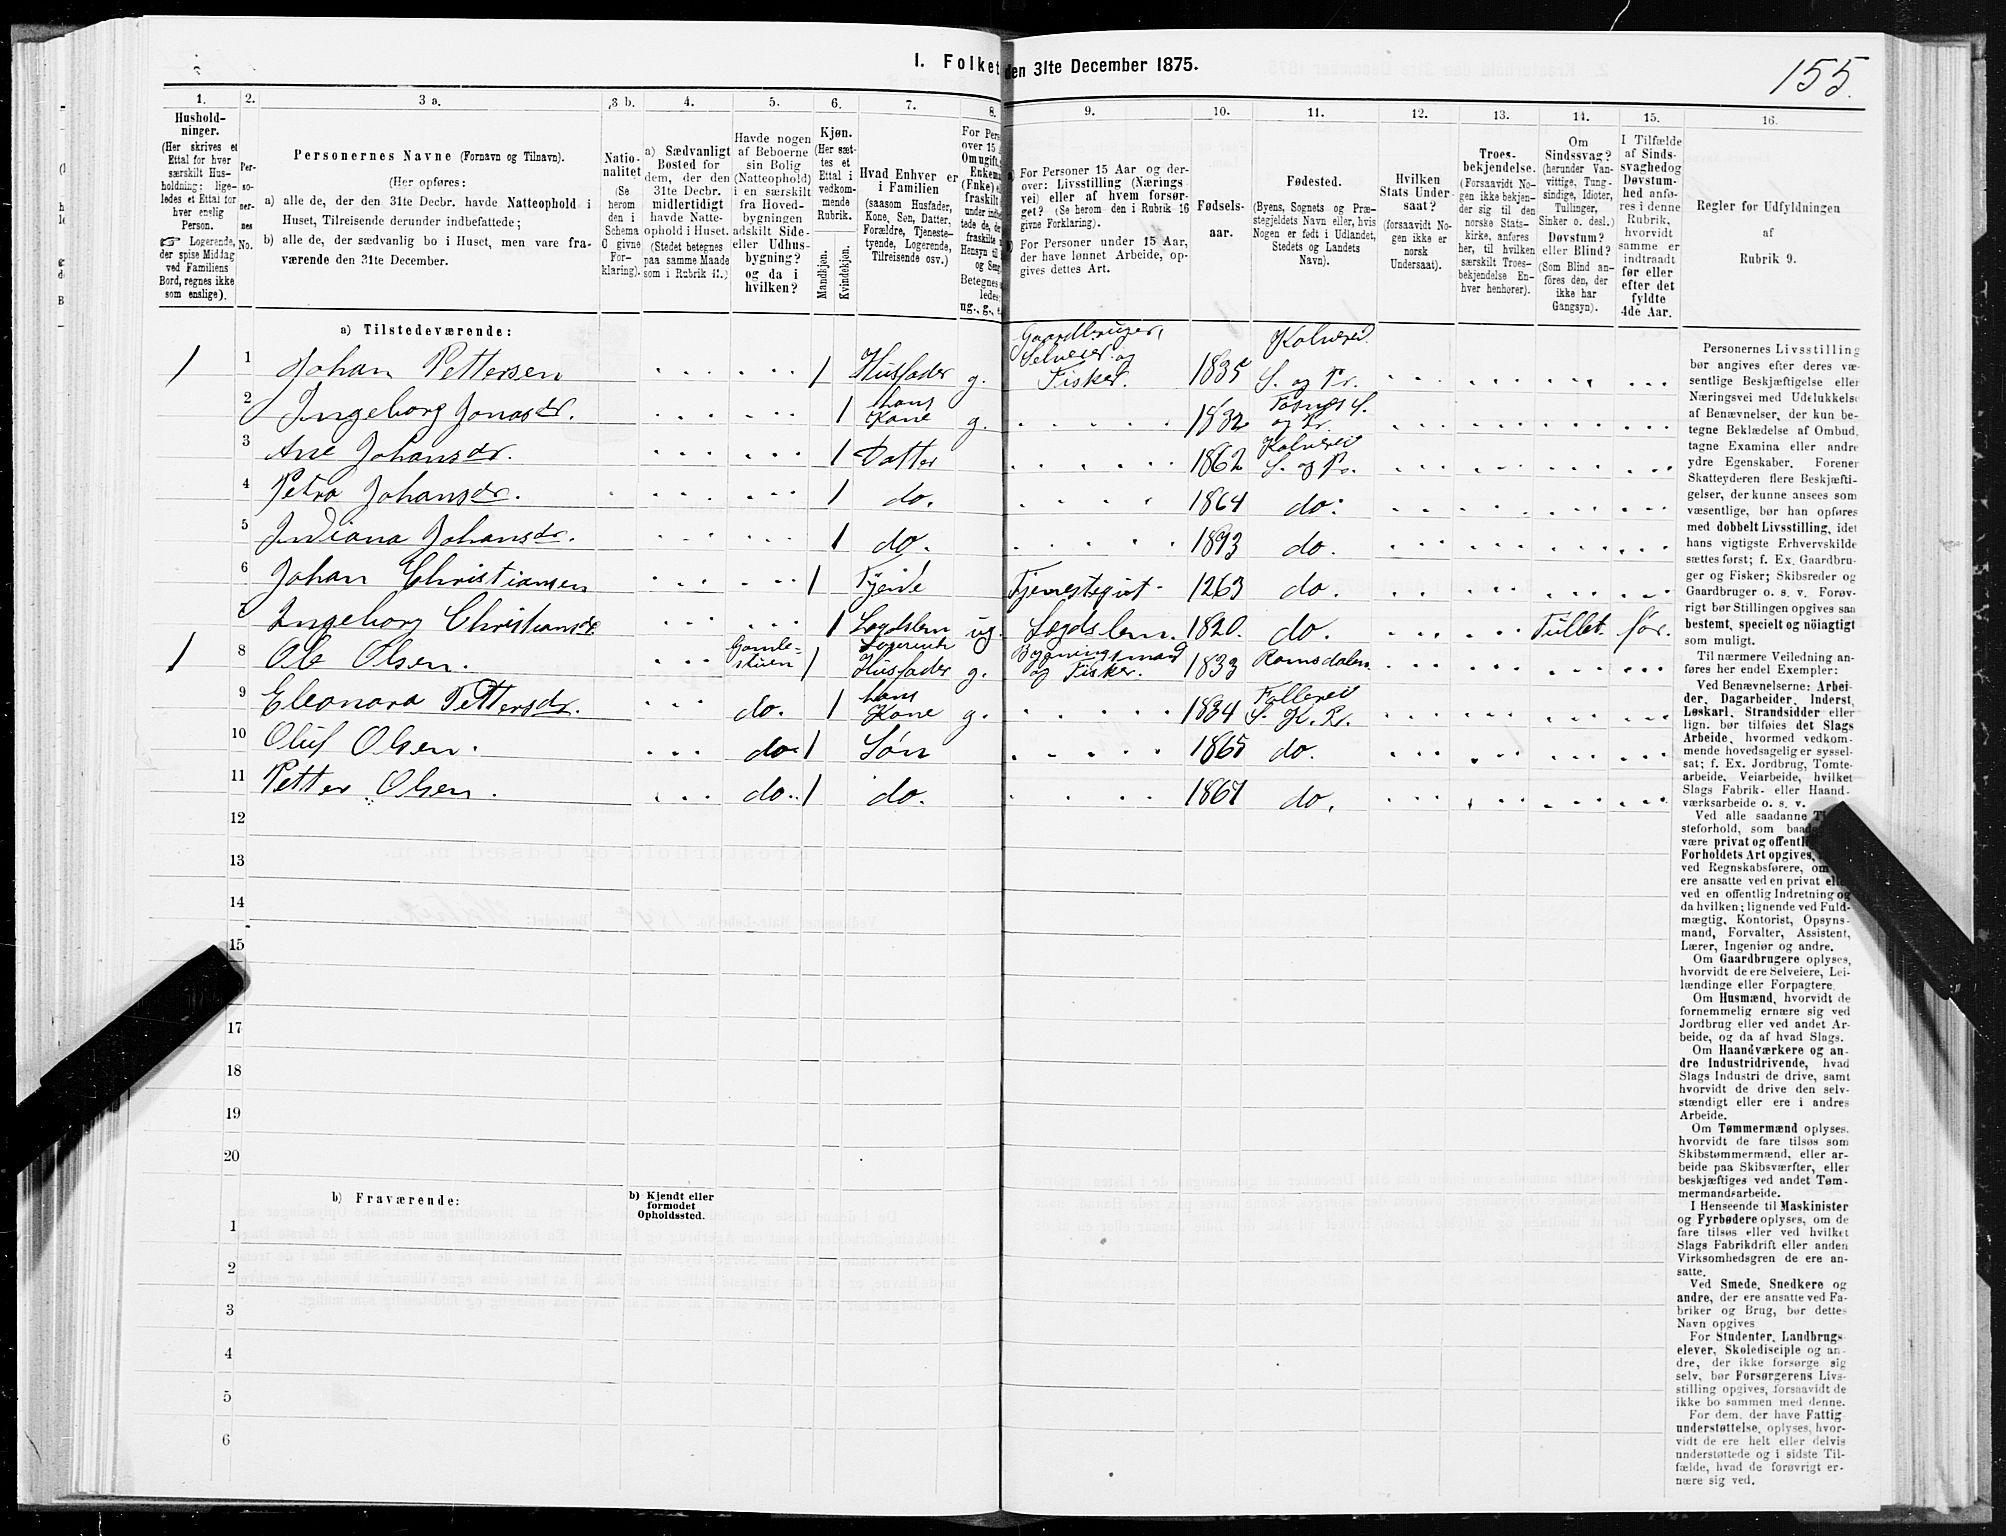 I. Folket den 31te December 1875.
155.
1. 2. 3 a. 3 b. 4. 5. 6. 7. 8. 9. 10. 11. 12. 13. 14. 15. 16.
Hushold-
ninger.
(Her skrives et
Ettal for hver
særskilt Hus-
holdning; lige-
ledes et Ettal for
hver enslig
Person.
☞ Logerende,
der spise Middag
ved Familiens
Bord, regnes ikke
som enslige).
Per-
so-
ner-
nes
No.
Personernes Navne (Fornavn og Tilnavn).
(Her opføres:
a) alle de, der den 31te Decbr. havde Natteophold i
Huset, Tilreisende derunder indbefattede;
b) alle de, der sædvanlig bo i Huset, men vare fra-
værende den 31te December.
Natio-
nalitet
(Se
herom
den i
Schema
O givne
For-
klaring).
a) Sædvanligt
Bosted for
dem, der den
31te Decbr.
midlertidigt
havde Natte-
ophold i Huset.
(Stedet betegnes
paa samme Maade
som i Rubrik 11.)
Havde nogen
af Beboerne
sin Bolig
(Natteophold)
i en særskilt
fra Hoved-
bygningen
adskilt Side-
eller Udhus-
bygning?
og da i
hvilken?
Kjøn.
(Her sæt-
tes et
Ettal i
vedkom-
mende
Rubrik.
Mandkjøn.
Kvindekjøn.
Hvad Enhver er
i Familien
(saasom Husfader,
Kone, Søn, Datter,
Forældre, Tjeneste-
tyende, Logerende,
Tilreisende osv.)
For Pers
over 15 A
Omugift,
Enkema
(Fnke) e
fraskilt
under indbe
tede de, de
fraskilte
Hensyn til
og Seng
Betegnes
ledes:
ug., g., e
For Personer 15 Aar og der-
over: Livsstilling (Nærings
vei) eller af hvem forsør-
get? (Se herom den i Rubrik 16
givne Forklaring).
For Personer under 15 Aar,
der have lønnet Arbeide, op-
gives dettes Art.
Fødsels-
aar.
Fødested.
(Byens, Sognets og Præ-
stegjeldets Navn eller, hvis
Nogen er født i Udlandet,
Stedets og Landets
Navn).
Hvilken
Stats Under-
saat?
(forsaavidt No-
gen ikke er
norsk
Undersaat).
Troes-
bekjendelse.
(Forsaavidt No-
gen ikke bekjen-
der sig til den
norske Stats-
kirke, anføres
her, til hvilken
særskilt Troes-
bekjendelse En-
hver henhører).
Om
Sindssvag?
(herunder Van-
vittige, Tung-
sindige, Idioter,
Tullinger,
Sinker o. desl.)
Døvstum?
eller Blind?
(Som Blind an-
føres den, der
ikke har
Gangsyn).
I Tilfælde
af Sinds-
svaghed og
Døvstum-
hed anfø-
res i denne
Rubrik,
hvorvidt
samme er
indtraadt
før eller
efter det
fyldte
4de Aar.
Regler for Udfyldningen
af
Rubrik 9.
a) Tilstedeværende:
1 1 Johan Pettersen 1 Husfader g. Gaardbruger, Selveier og Fisker. 1835 Kolvereid S. og Pr.
2 Ingeborg Jonasdr. 1 hans Kone g. 1832 S. og Pr.
3 Ane Johansdr. 1 Datter 1862 Kolvereid S. og Pr.
4 Petra Johansdr. 1 do. 1864 do.
5 Indiana Johansdr. 1 do. 1873 do.
6 Johan Christiansen 1 Tjende Tjenestegut. 1263 do.
7 Ingeborg Christiansdr. 1 Lægdslem ug. Lægdslem. 1820. do. Tullet. før.
1 8 Ole Olsen. Gamle-stuen 1 Logerende Husfader g. Bygningsmand og Fisker. 1833 Romsdalen
9 Eleonora Pettersdr. do. 1 hans Kone g. 1834 Follereid S. K. Pr.
10 Oluf Olsen. do. 1 Søn 1865 do.
11 Petter Olsen. do. 1 do. 1867 do.
12
13
14
15
17
18
19
20
b) Fraværende:
b) Kjendt eller
formodet
Opholdssted.
1
2
3
4
5
6
Personernes Livsstilling
bør angives efter deres væ-
sentlige Beskjæftigelse eller
Næringsvei med Udelukkelse
af Benævnelser, der kun be-
tegne Beklædelse af Ombud,
tagne Examina eller andre
ydre Egenskaber. Forener
Skatteyderen flere Beskjæfti-
gelser, der kunne ansees som
væsentlige, bør han opføres
med dobbelt Livsstilling, idet
hans vigtigste Erhvervskilde
sættes først; f. Ex. Gaardbru-
ger og Fisker; Skibsreder og
Gaardbruger o. s. v. Forøv-
rigt bør Stillingen opgives saa
bestemt, specielt og nöiagtigt
som muligt.
Til nærmere Veiledning an-
føres her endel Exempler:
Ved Benævnelserne: Arbei-
der, Dagarbeider, Inderst,
Løskarl, Strandsidder eller
lign. bør tilføies det Slags
Arbeide, hvormed vedkom-
mende hovedsagelig er syssel-
sat; f. Ex. Jordbrug, Tomte-
arbeide, Veiarbeide, hvilket
Slags Fabrik- eller Haand-
værksarbeide o. s. v.
Ved alle saadanne T
steforhold, som baade
være privat og offentli
Forholdets Art opgives,
ved Regnskabsførere, om
ere ansatte ved en privat elle
ved en offentlig Indretning og
da hvilken; lignende ved Fuld-
mægtig, Kontorist, Opsyns-
mand, Forvalter, Assistent,
Lærer, Ingeniør og andre.
Om Gaardbrugere oplyses,
hvorvidt de ere Selveiere, Lei-
lændinge eller Forpagtere.
Om Husmænd, hvorvidt de
fornemmelig ernære sig ved
Jordbrug eller ved andet Ar-
beide, og da af hvad Slags.
Om Haandværkere og an-
dre Industridrivende, hvad
Slags Industri de drive, samt
hvorvidt de drive den selv-
stændigt eller ere i andres
Arbeide.
Om Tømmermænd oplyses,
hvorvidt de fare tilsøs som
Skibstømmermænd, eller ar-
beide paa Skibsværfter, eller
beskjæftiges ved andet Tøm-
mermandsarbeide.
I Henseende til Maskinister
og Fyrbødere oplyses, om de
fare tilsøs eller ved hvilket
Slags Fabrikdrift eller anden
Virksomhedsgren de ere an-
satte.
Ved Smede, Snedkere og
andre, der ere ansatte ved Fa-
briker og Brug, bør dettes
Navn opgives
For Studenter, Landbrugs-
elever, Skoledisciple og an-
dre, der ikke forsørge sig
selv, bør Forsørgerens Livs-
stilling opgives, forsaavidt de
ikke bo sammen med denne.
For dem, der have Fattig-
understøttelse, oplyses, hvor-
vidt de ere helt eller delvis
understøttede og i sidste Til-
fælde, hvad de forøvrigt er-
nære sig ved.